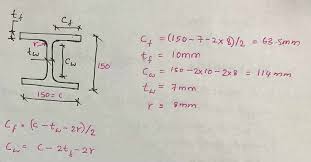 tf
Cf
r
tw
Cw
150
150 = c
Cf = (150-7-2x8)/2 = 63.5mm
tf = 10mm
Cw = 150-2x10-2x8 = 114mm
tw = 7mm
r = 8mm
Cf = (c - tw - 2r)/2
Cw = c - 2tf - 2r